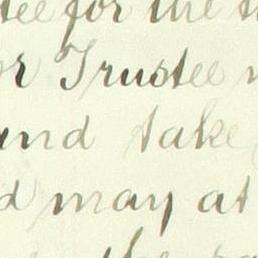 tee for the
or Trustee
and take
d may at
the